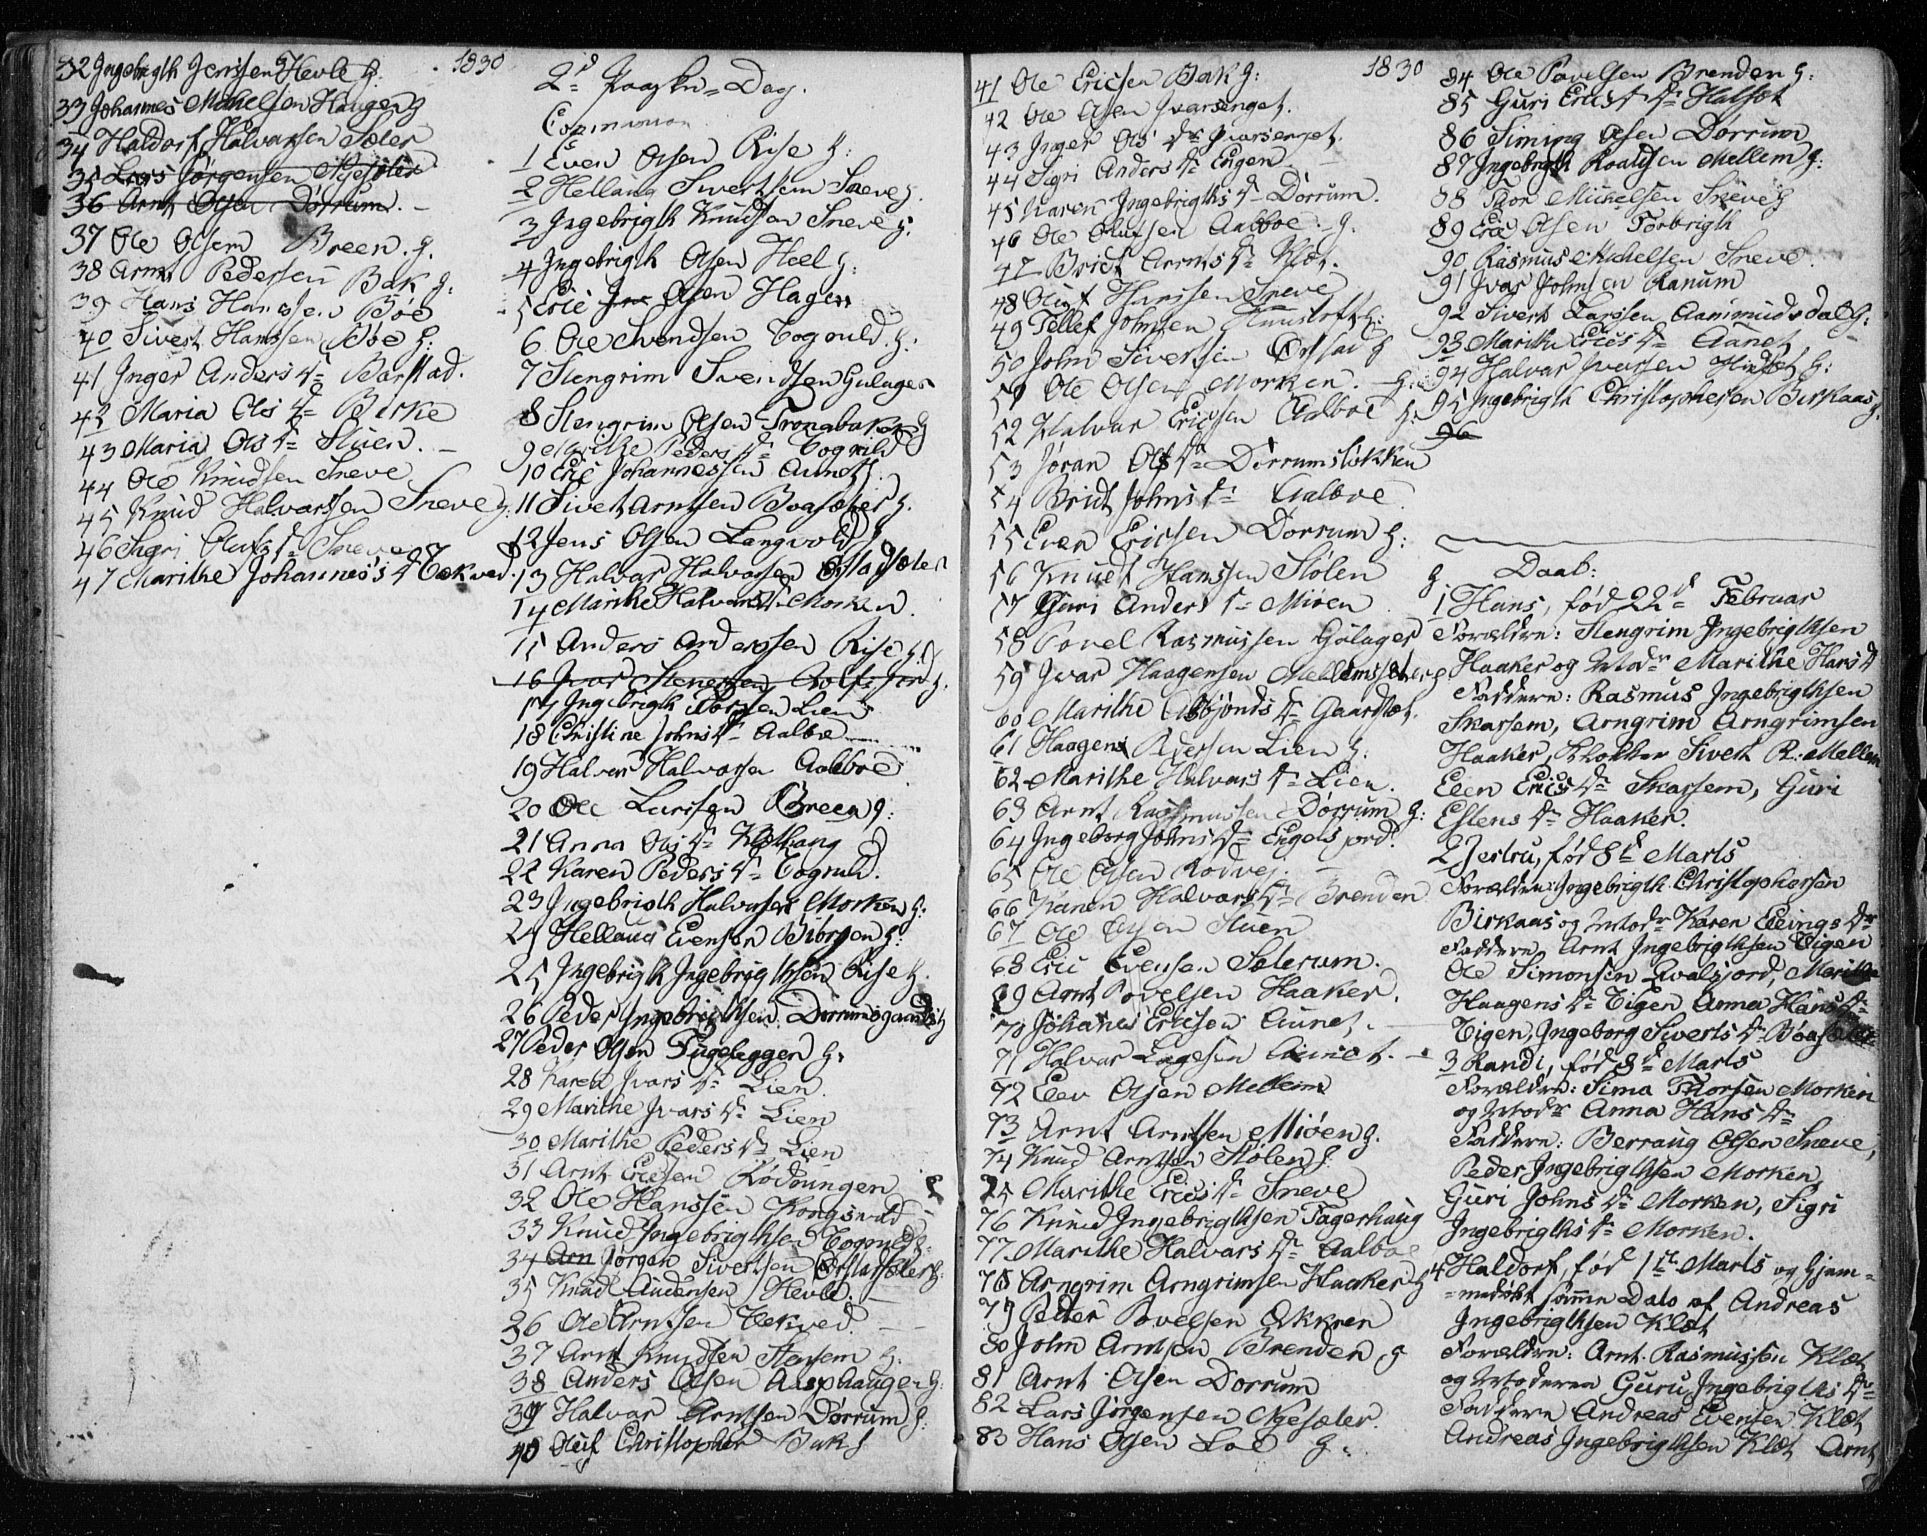 1830
32 Ingebrigth Jenssen Hevle g.
33 Johannes Mikkelsen Haugen g
34 Haldorf Halvorsen Sæter
35 Lars Jørgensen Nyesæter
36 Arnt Olsen Dørrum. –
37 Ole Olsen Breen. g.
38 Arnt Pedersen Bak g.
39 Hans Hanssen Böe
40 Sivert Hanssen Böe g.
41 Inger Anders Dr Barstad.
42 Maria Ols Dr Birke
43 Maria Ols Dr Stuen. –
44 Ole Knudsen Sneve
45 Knud Halvorssen Sneve g.
46 Sigri Olufs Dr Sneve
47 Marithe Johannes's D Vekved.
2d Paaske-Dag.
Communion
1 Even Olsen Rise g:
2 Hellaug Sivertsen Sneve g.
3 Ingebrigth Knudsen Sneve g.
4 Ingebrigth Olsen Heel g:
5 Eric Olsen Hagen
6 Ole Svendsen Vognild. g.
7 Stengrim Svendsen Gulager
8 Stengrim Olsen Tronabakk g
9 Marithe Peders Dr Vognild
10 Eric Johannessen Aunet
11 Sivert Arntsen Boasæter g.
12 Jens Olsen Langvold g
13 Halvar Halvorsen Ørstadsæter
14 Marithe Halvars Dr Morken.
15 Anders Anderssen Rise g.
16 Ivar Stenersen g.
17 Ingebrigth Lien
18 Christine Johns Dr Aalboe
19 Halvar Halvorsen Aalboe
20 Ole Larssen Breen g:
21 Anna Ols Dr Kløthaug
22 Karen Peders Dr Vognild.
23 Ingebrigth Halvorsen Morken g.
24 Hellaug Evensen Biørgen g.
25 Ingebrigth Ingebrigthsen Rise g.
26 Peder Ingebrigthsen Dørrumsgaard g
27 Peder Olsen Fugeleggen g.
28 Karen Ivars Dr Lien.
29 Marithe Ivars Dr Lien
30 Marithe Peders Dr Lien
31 Arnt Ericsen Rødningen
32 Ole Hanssen Kongsvold
33 Knud Ingebrigthsen Vognild g.
34 Arn Jørgen Sivertsen Ørstadsæter g.
35 Knud Andersen Hevle.
36 Ole Arntsen Vekved.
37 Arnt Knudsen Stensem g.
38 Anders Olsen Aasphaugen g.
39 Halvar Arntsen Dørrum g.
40 Oluf Christopher Bak g
1830
41 Ole Ericsen Bak g:
42 Ole Olsen Ivarsenget.
43 Inger Ols Dr Ivarsenget.
44 Sigri Anders Dr Engen.
45 Karen Ingebrigths Dr Dørrum.
46 Ole Olufsen Aalboe. g.
47 Bridt Arnts Dr Klæt.
48 Oluf Hanssen Sneve
49 Tellef Johnsen g.
50 John Sivertsen Ørstad g
51 Ole Olsen Morken. g.
52 Halvar Ericsen Aalboe g.
53 Jøran Ols Dr Dørrumsløkken
54 Bridt Johns Dr Aalboe.
55 Even Ericsen Dørrum g:
56 Knud Hanssen Stölen
57 Guri Anders Dr Miöen
58 Povel Rasmussen Gulager
59 Ivar Haagensen Mellemsæter g
60 Marithe Asbjönds Dr Gaardset.
61 Haagen Pedersen Lien g.
62 Marithe Halvars Dr Lien.
63 Arnt Rasmussen Dørrum g:
64 Ingeborg Johns Dr Engelsjord.
65 Ole Olsen Rodvej.
66 Karen Halvars Dr Brenden
67 Ole Olsen Stuen
68 Eric Evensen Sæterum.
69 Arnt Povelsen Haaker.
70 Johanes Ericsen Aunet. –
71 Halvar Lagesen Aunet. –
72 Elev Olsen Mellem
73 Arnt Arntsen Miöen g.
74 Knud Arntsen Stölen g.
75 Marithe Erics Dr Sneve
76 Knud Ingebrigthsen Fagerhaug
77 Marithe Halvars Dr Aalboe
78 Arngrim Arngrimsen Haaker g
79 Peder Povelsen Økkren
80 John Arntsen Brenden g
81 Arnt Olsen Dorrum
82 Lars Jørgensen Nyesæter.
83 Hans Olsen Loe g.
84 Ole Povelsen Brenden g:
85 Guri Erics Dr Halset
86 Siming Olsen Dørrum
87 Ingebrigth Roaldsen Mellem g.
88 Thor Mikkelsen Sneve g
89 Eric Olsen Forbrigth
90 Rasmus Mikkelsen Sneve.
91 Ivar Johnsen Ranum
92 Sivert Larssen Aamundsdal g.
93 Marithe Erics Dr Aunet
94 Halvar Ivarsen Hindset g:
95 Ingebrigth Christophersen Birkaas g.
96
Daab:
1 Hans, fød 22d Februar
Forældre: Stengrim Ingebrigthsen
Haaker og Moder Marithe Hans D
Faddere: Rasmus Ingebrigthsen
Skarsem, Arngrim Arngrimsen
Haaker, Klokker Sivert R. Mellem
Elen Erics Dr Skarsem, Guri
Estens Dr Haaker.
2 Jertru, fød 8d Marts
Forældre: Ingebrigth Christophersen
Birkaas og Moder Karen Ellings Dr
Faddere Arnt Ingebrigthsen Vigen
Ole Simonsen Qvalsjord, Marithe
Haagens Dr Vigen Anna Hans Dr
Vigen, Ingeborg Siverts Dr Bøasæter
3 Randi, fød 8d Marts
Forældre: Sima Thorsen Morken
og Moder Anna Hans Dr
Faddere: Berraug Olsen Sneve,
Peder Ingebrigthsen Morken,
Guri Johns Dr Morken, Sigri
Ingebrigths Dr Morken.
4 Haldorf, fød 1te Marts og hjem-
-medøbt samme Dato af Andreas
Ingebrigthsen Klæt
Forældre: Arnt Rasmussen Klæt
og Moderen Guru Ingebrigths Dr
Faddere Andreas Evensen Klæt,
Andreas Ingebrigthsen Klæt, Arnt